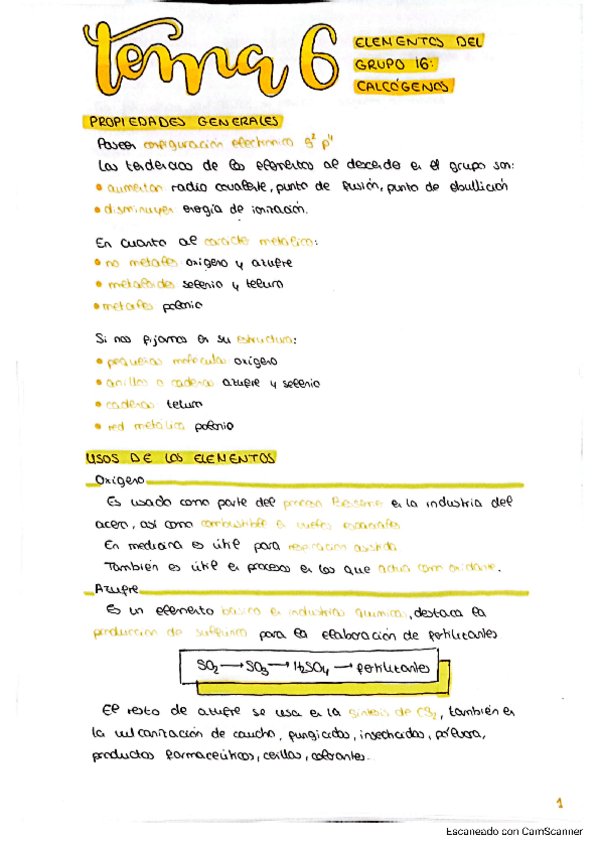 tema 6
ELEMENTOS DEL
GRUPO 16:
CALCÓGENOS
PROPIEDADES GENERALES
Poseen configuración electrónica s² p⁴
Las tendencias de los elementos al descender en el grupo son:
• aumentan radio covalente, punto de fusión, punto de ebullición
• disminuyen energía de ionización.
En cuanto al carácter metálico:
• no metales oxígeno y azufre
• metaloides selenio y teluro
• metales polonio
Si nos fijamos en su estructura:
• pequeñas moléculas oxígeno
• anillos o cadenas azufre y selenio
• cadenas teluro
• red metálica polonio
USOS DE LOS ELEMENTOS
Oxígeno
Es usado como parte del proceso Bessemer en la industria del
acero, así como combustible en vuelos espaciales
En medicina es útil para respiración asistida
También es útil en procesos en los que actúa como oxidante.
Azufre
Es un elemento básico en industrias químicas, destaca la
producción de sulfúrico para la elaboración de fertilizantes
SO₂ → SO₃ → H₂SO₄ → fertilizantes
El resto de azufre se usa en la síntesis de CS₂, también en
la vulcanización de caucho, fungicidas, insecticidas, pólvora,
productos farmacéuticos, cerillas, colorantes.
1
Escaneado con CamScanner